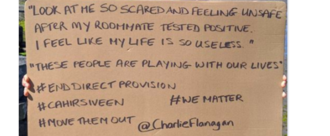 "LOOK AT ME SO SCARED AND FEELING UNSAFE
AFTER MY ROOMMATE TESTED POSITIVE.
I FEEL LIKE MY LIFE IS SO USELESS."
"THESE PEOPLE ARE PLAYING WITH OUR LIVES"
#ENDDIRECT PROVISION
#CAHIRSIVEEN #WE MATTER
#MOVE THEM OUT @CharlieFlanagan